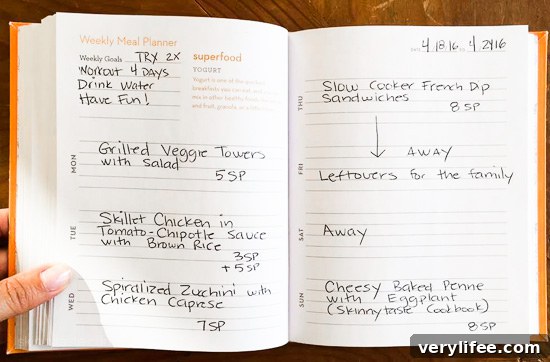 Weekly Meal Planner
Weekly Goals TRY 2X
Workout 4 Days
Drink Water
Have Fun!
superfood
YOGURT
Yogurt is one of the
breakfasts you can
mix in other healthy
and fruit, granola or
MON
Grilled Veggie Towers
with Salad
5 SP
TUE
Skillet Chicken in
Tomato-Chipotle Sauce
with Brown Rice
3SP
+ 5 SP
WED
Spiralized Zucchini with
Chicken Caprese
7 SP
4.18.16 - 4.24.16
THU
Slow Cooker French Dip
Sandwiches
8 SP
FRI
AWAY
Leftovers for the family
SAT
Away
SUN
Cheesy Baked Penne
with Eggplant
(Skinnytaste Cookbook)
8SP
verylifee.com